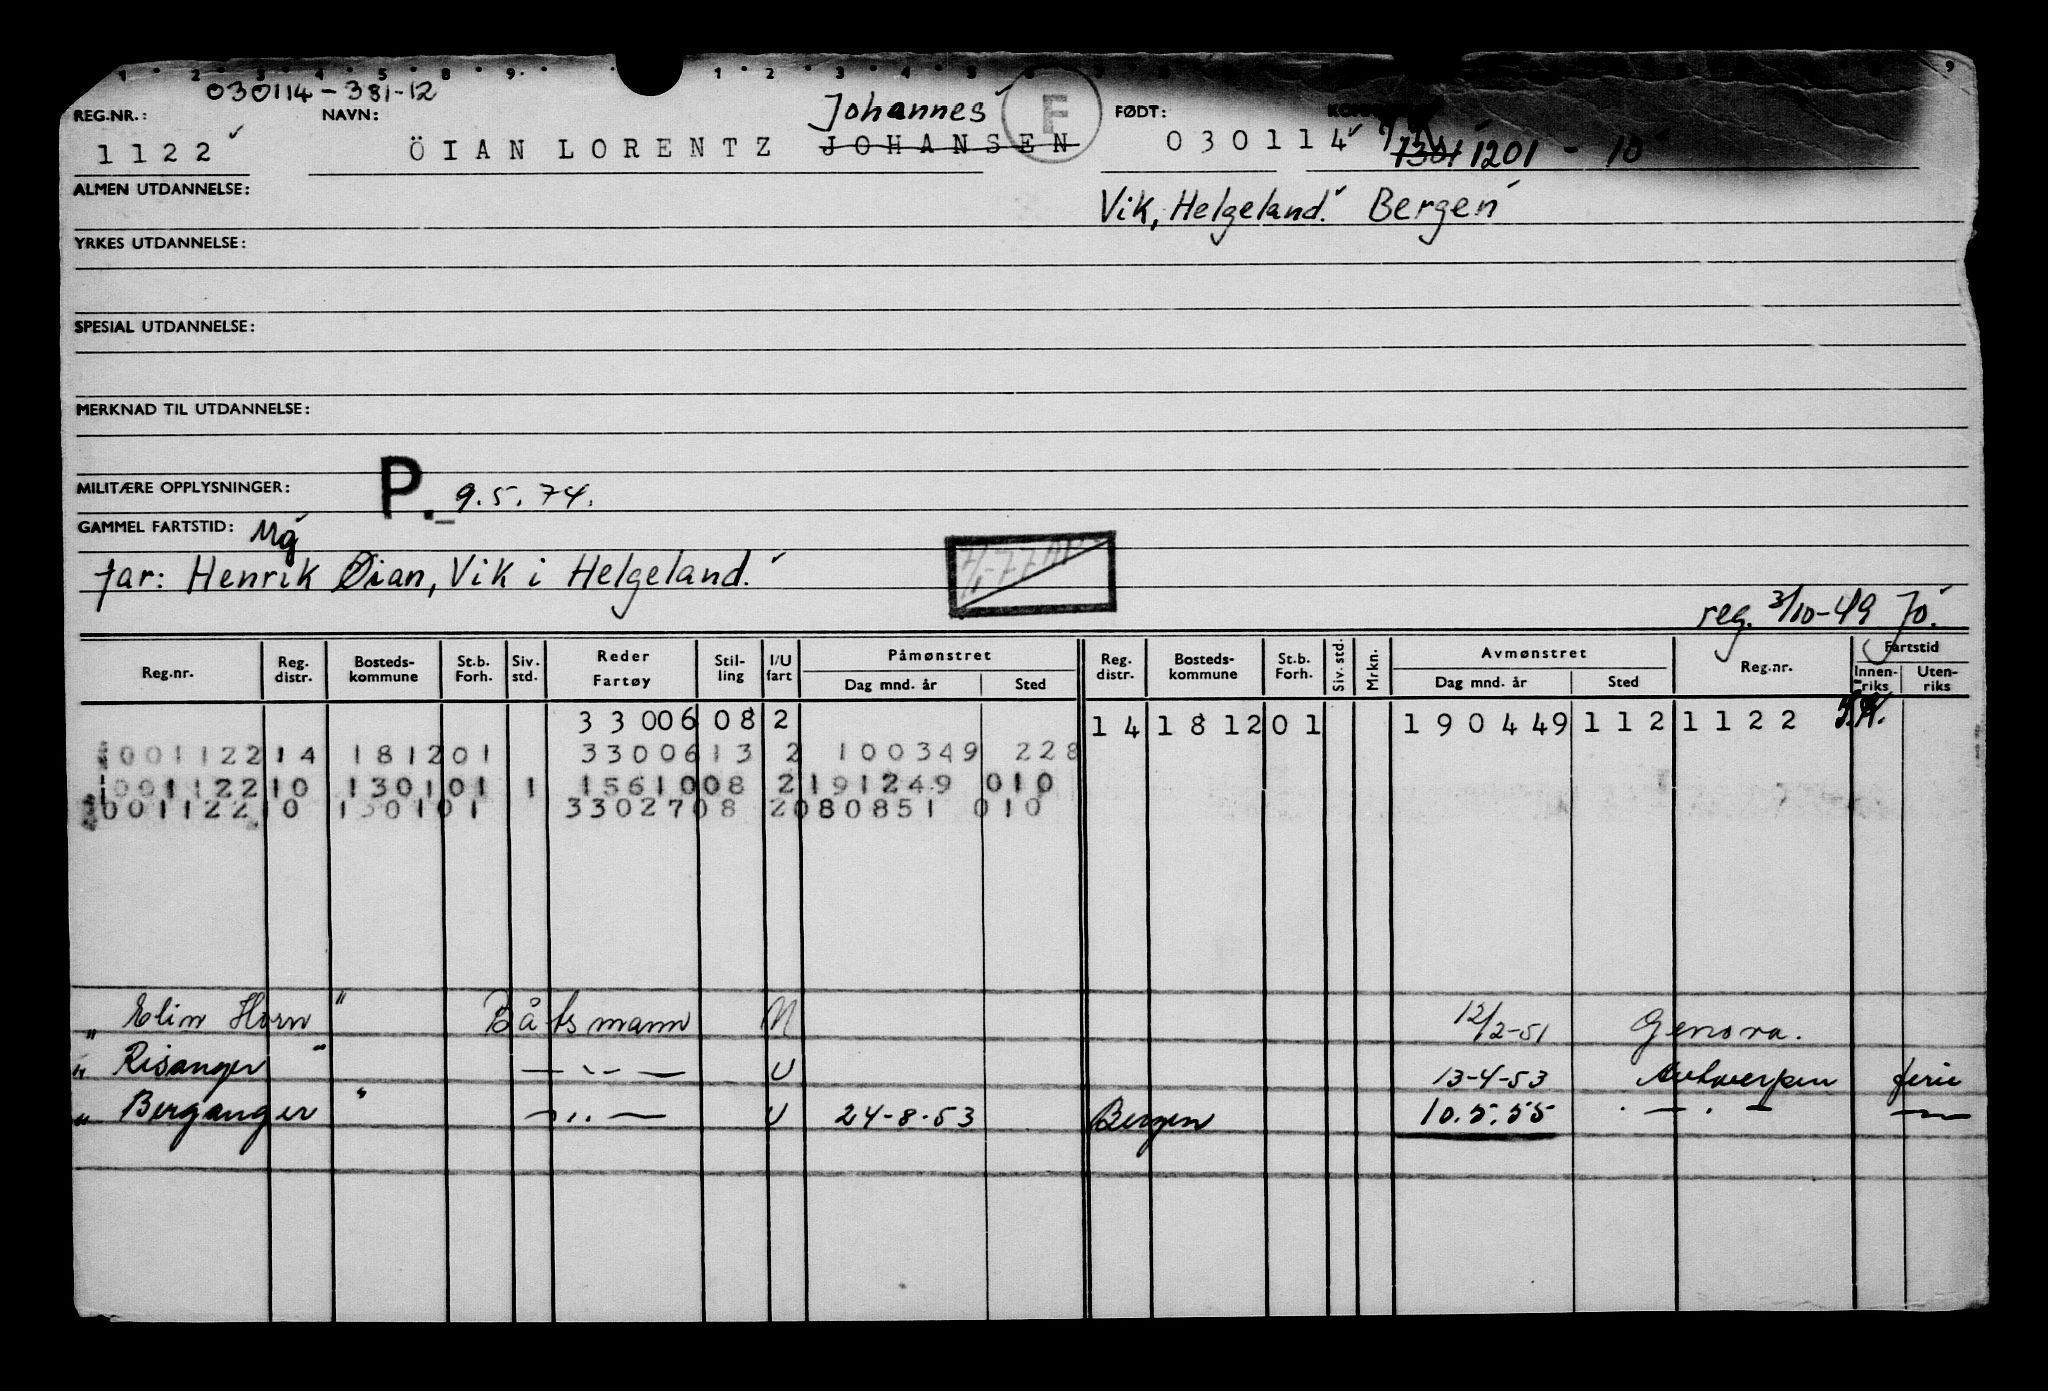 1 2 3 4 5 8 9 1 2 3 4 5 9
030114-381-12
REG.NR.: NAVN: Johannes F FØDT:
1122 ÖIAN LORENTZ JOHANSEN 030114 7301 1201 - 10
ALMEN UTDANNELSE: Vik, Helgeland. Bergen
YRKES UTDANNELSE:
SPESIAL UTDANNELSE:
MERKNAD TIL UTDANNELSE:
MILITÆRE OPPLYSNINGER: P. 9.5.74.
GAMMEL FARTSTID:
far: Henrik Øian, Vik i Helgeland.
reg. 3/10-49 Jo.
Reg.nr. Reg. distr. Bosteds-kommune St.b. Forh. Siv. std. Reder Fartøy Stil-ling I/U fart Påmønstret Dag mnd. år Sted Reg. distr. Bosteds-kommune St.b. Forh. Siv. std. Mrkn. Avmønstret Dag mnd. år Sted Reg.nr. Fartstid Innen-riks Uten-riks
33006 08 2 14 1812 01 190449 112 1122
001122 14 1812 01 33006 13 2 100349 228
001122 10 1301 01 1 15610 08 2 191249 010
001122 10 1301 01 33027 08 2 080851 010
" Elin Horn " Båtsmann 12/2-51 Genova.
" Risanger " — " — U 13-4-53 Antwerpen ferie
" Berganger " — " — U 24-8-53 Bergen 10.5.55 — " — —